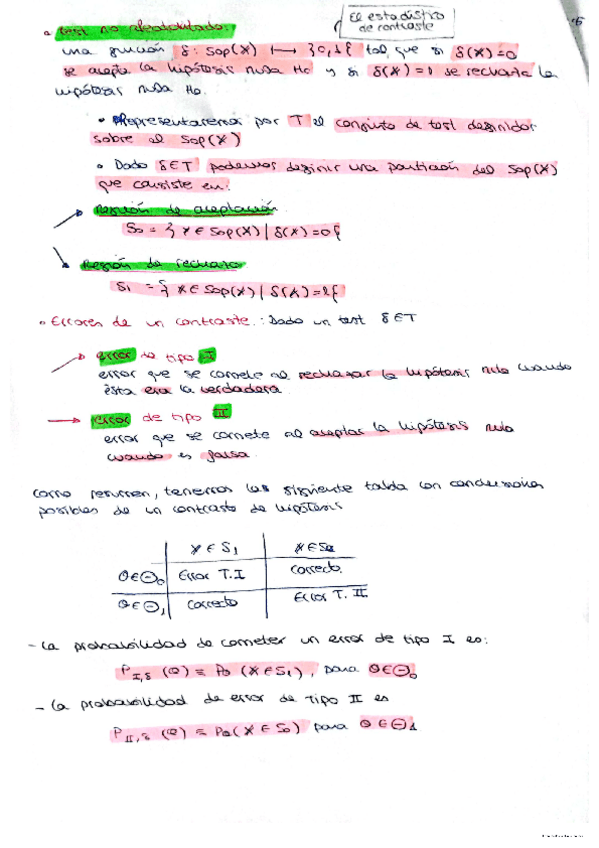 El estadístro
de contraste
• test no aleatorizado:
una función δ: Sop(X) ⟼ }0,1{ tal que si δ(X)=0
se acepta la hipótesis nula H₀ y si δ(X)=1 se rechaza la
hipótesis nula H₀.
• Representaremos por T el conjunto de test definidos
sobre el Sop(X)
• Dado δ∈T podemos definir una partición del Sop(X)
que consiste en:
→ Región de aceptación
S₀ = { X ∈ Sop(X) | δ(X)=0{
→ Región de rechazo
S₁ = { X ∈ Sop(X) | δ(X)=1{
• Errores de un contraste: Dado un test δ∈T
→ error de tipo I
error que se comete al rechazar la hipótesis nula cuando
ésta era la verdadera.
→ error de tipo II
error que se comete al aceptar la hipótesis nula
cuando es falsa.
Como resumen, tenemos la siguiente tabla con conclusiones
posibles de un contraste de hipótesis
X∈S₁ X∈S₀
θ∈Θ₀ Error T.I Correcto.
θ∈Θ₁ Correcto Error T. II.
- La probabilidad de cometer un error de tipo I es:
P I,δ (θ) = Pθ (X∈S₁), para θ∈Θ₀
- La probabilidad de error de tipo II es
P II,δ (θ) = Pθ(X∈S₀) para θ∈Θ₁